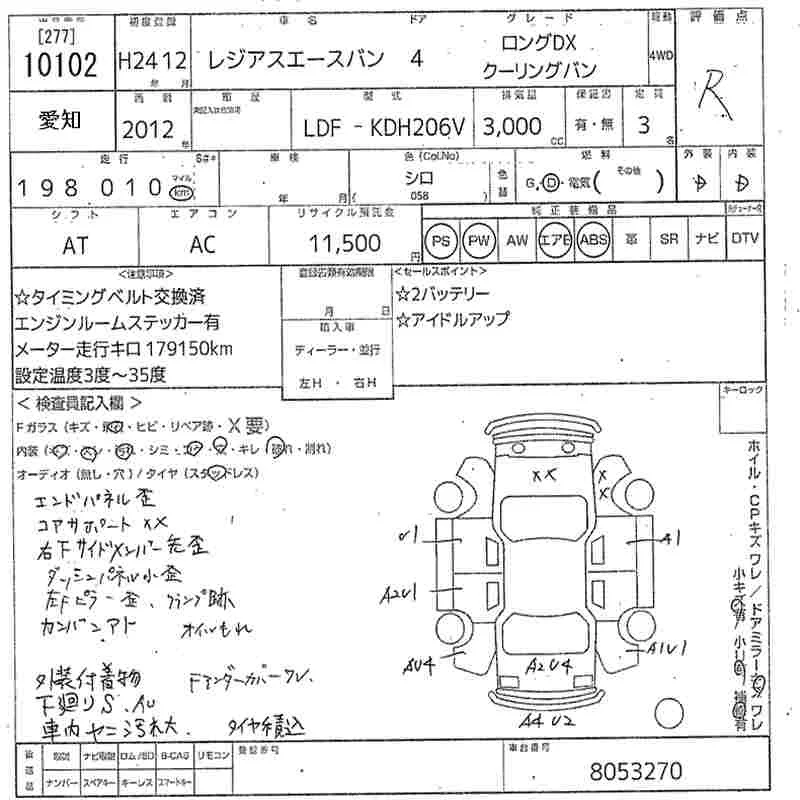 [277]
10102
初度登録
H24 12
年 月
車名
レジアスエースバン
ドア
4
グレード
ロングDX
クーリングバン
駆動
4WD
評価点
R
愛知
西暦
2012
年
型式
LDF - KDH206V
排気量
3,000
CC
保証書
有・無
定員
3
名
走行
198 010
マイル
km
車検
年 月
色(Col.No)
シロ
058
色替
燃料
G・D・電気(その他 )
外装
D
内装
D
シフト
AT
エアコン
AC
リサイクル預託金
11,500
円
純正装備品
PS
PW
AW
エアB
ABS
革
SR
ナビ
DTV
<注意事項>
☆タイミングベルト交換済
エンジンルームステッカー有
メーター走行キロ 179150km
設定温度3度～35度
登録書類有効期限
月 日
輸入車
ディーラー・並行
左H ・ 右H
<セールスポイント>
☆2バッテリー
☆アイドルアップ
キーロック
<検査員記入欄>
Fガラス(キズ・飛石・ヒビ・リペア跡・X要)
オーディオ(無し・穴)/タイヤ(スタッドレス)
エンドパネル歪
コアサポートXX
右下サイドメンバー先歪
ダッシュパネル小歪
左Fピラー歪、クランプ跡
カンバンアト オイルもれ
外装付着物 Fアンダーカバーワレ.
下廻りS.AU
車内ヤニ汚れ大. タイヤ積込
XX
X
X
U1
A1
A2U1
AU4
A2U4
A1U1
A4 U2
ホイル・CPキズワレ/ドアミラーキズワレ
後送品
取説
ナビ取説
ロム/SD
B-CAS
リモコン
ナンバー
スペアキー
キーレス
スマートキー
登録番号
車台番号
8053270